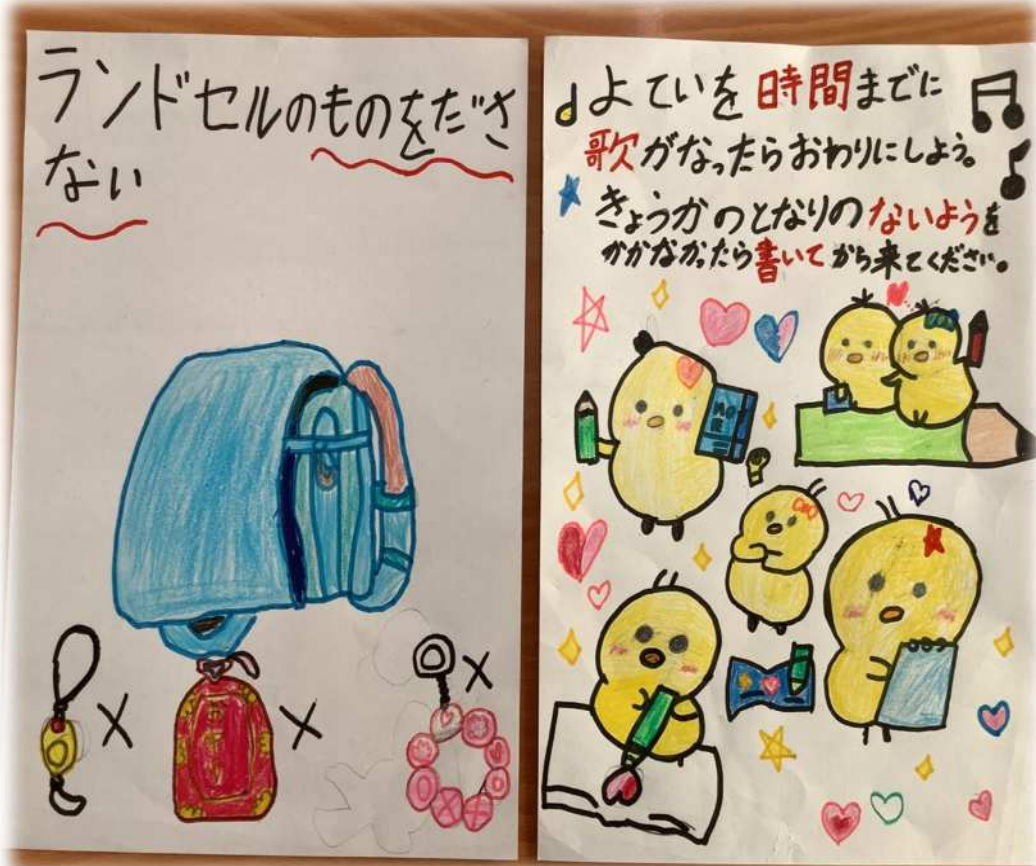 ランドセルのものをださ
ない
よていを時間までに
歌がなったらおわりにしよう。
きょうかのとなりのないようを
かかなかったら書いてから来てください。